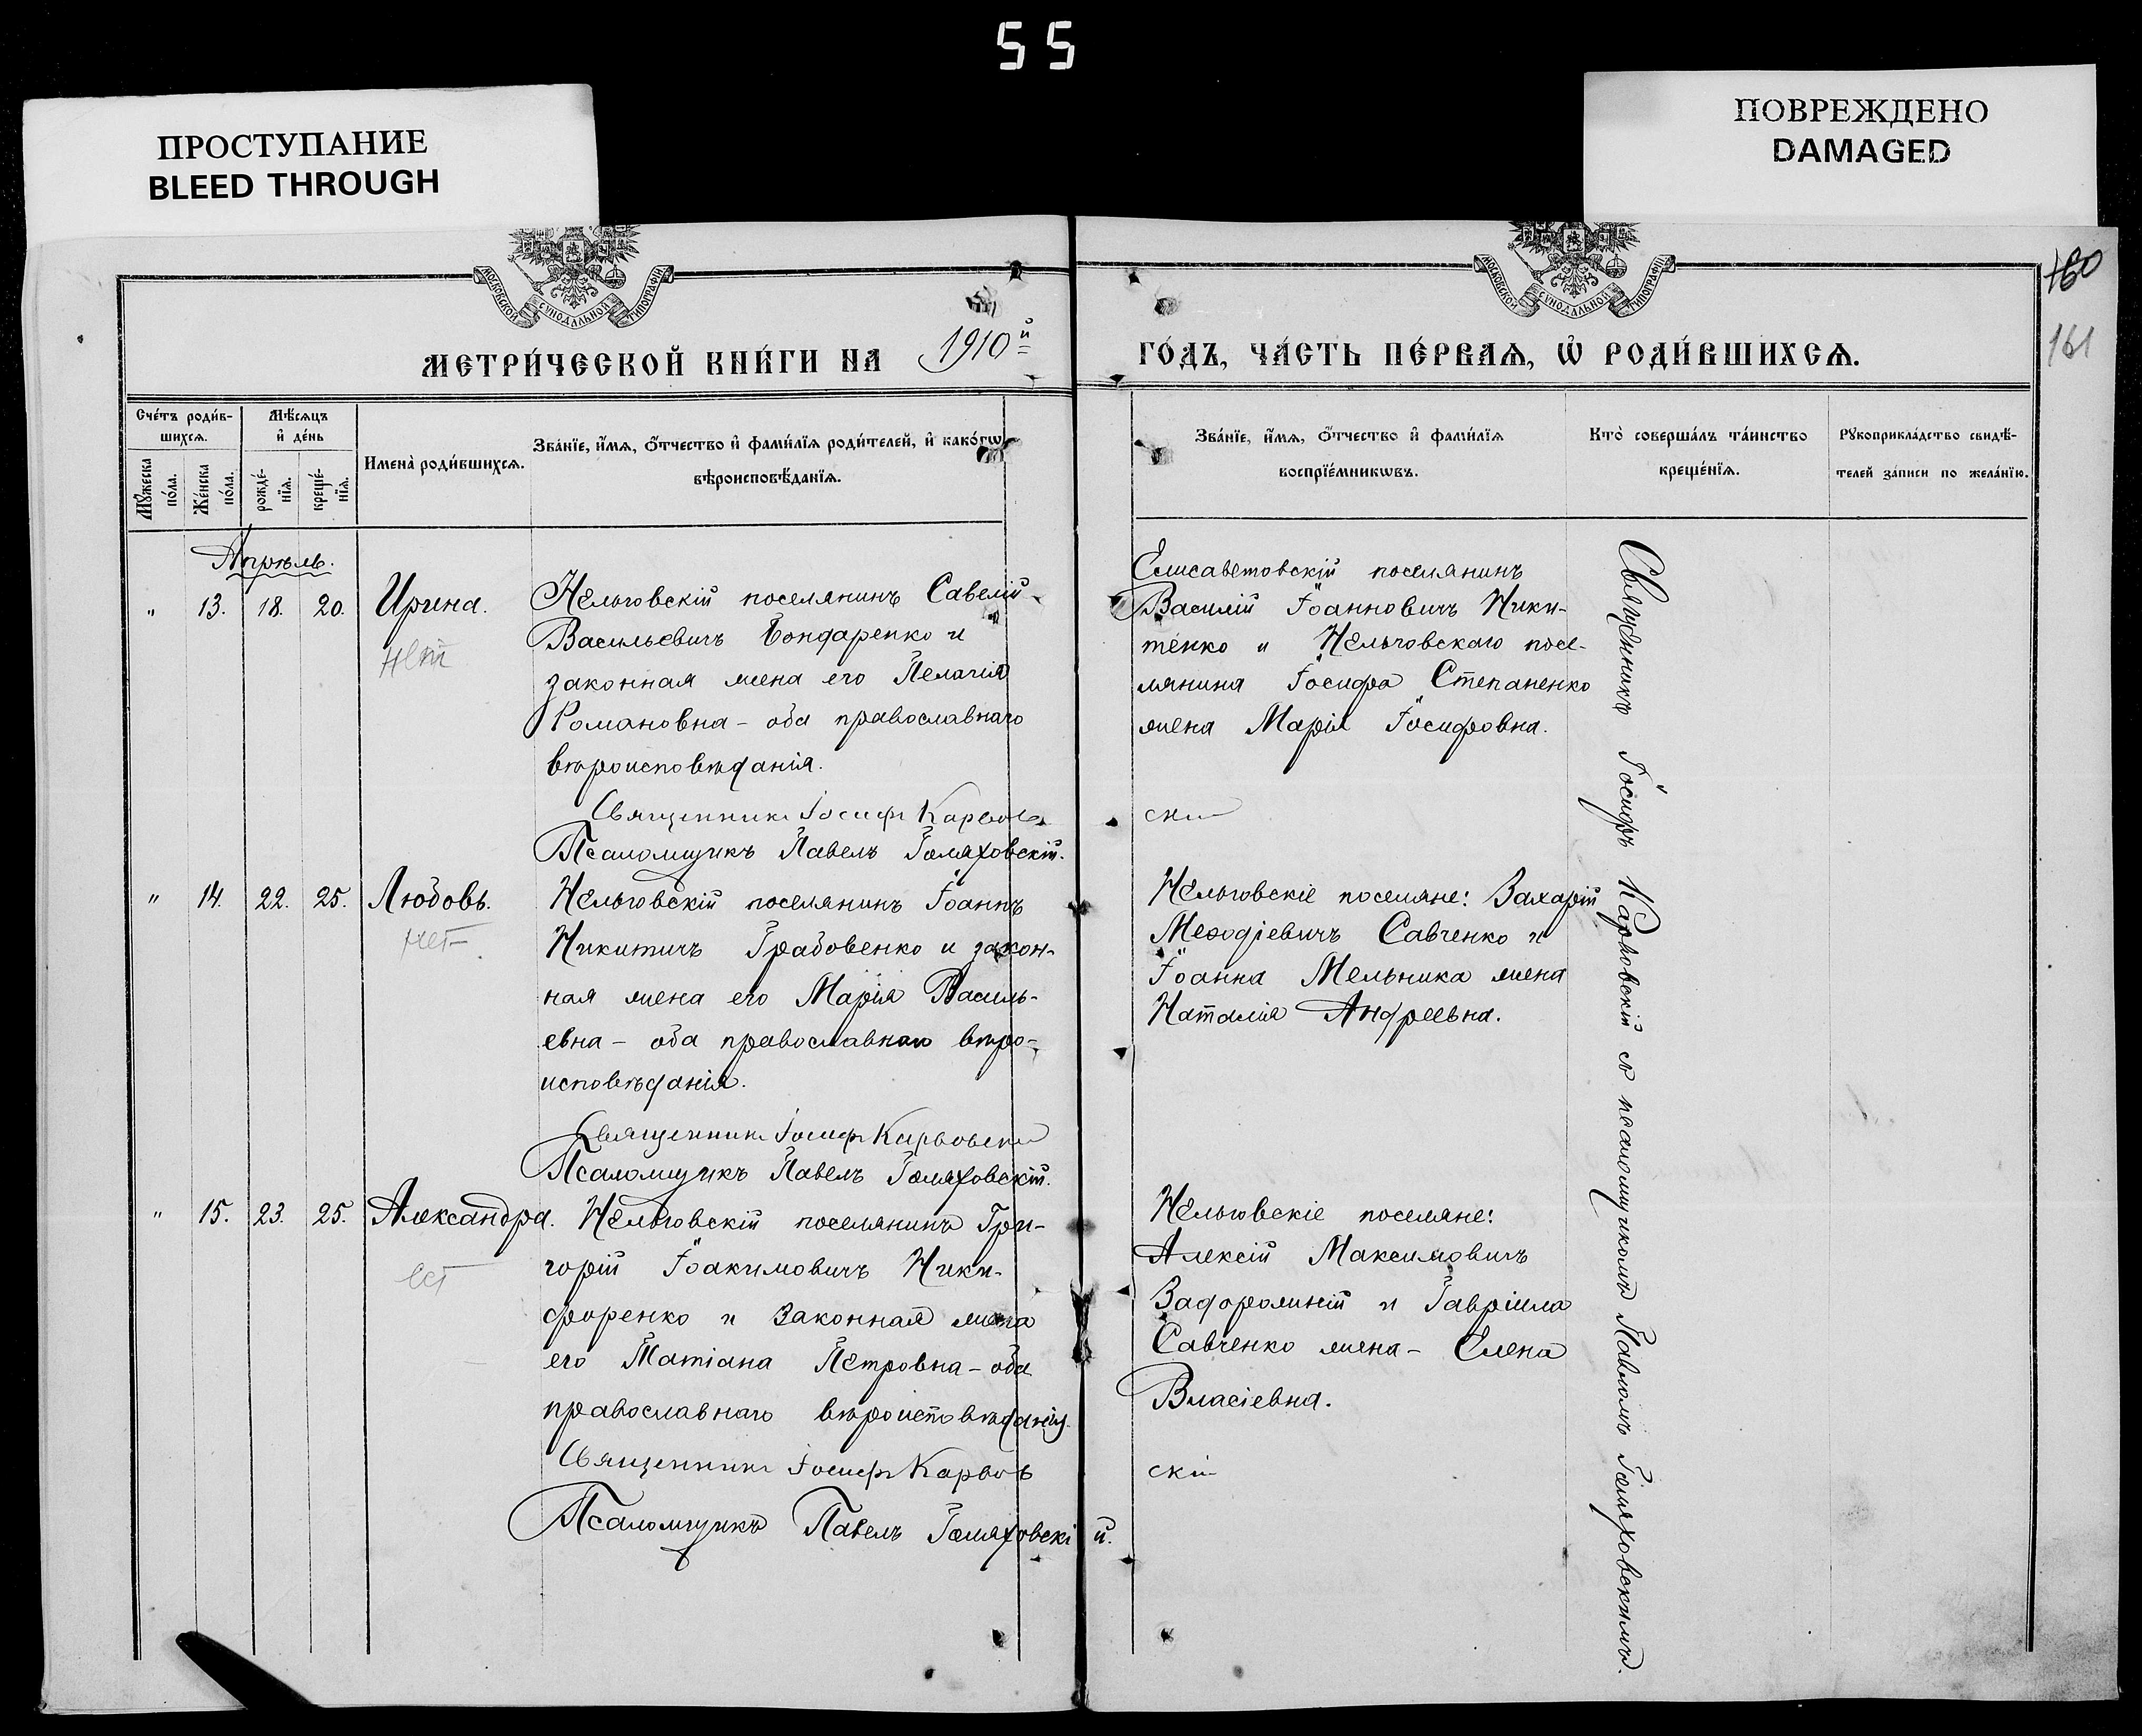 55
ПРОСТУПАНИЕ
BLEED THROUGH
ПОВРЕЖДЕНО
DAMAGED
МОСКОВСКОЙ СУНОДАЛЬНОЙ ТИПОГРАФІИ
МОСКОВСКОЙ СУНОДАЛЬНОЙ ТИПОГРАФІИ
160
161
МЕТРИ́ЧЕСКОЙ КНИ́ГИ НА 1910й
ГО́ДЪ, ЧА́СТЬ ПЕ́РВАѦ, Ѡ҆ РОДИ́ВШИХСѦ.
Сче́тъ роди́в-
шихсѧ.
Мѣ́сѧцъ
и҆ де́нь
Мꙋ́жеска
по́ла.
Же́нска
по́ла.
рожде́-
нїѧ.
креще́-
нїѧ.
Имена̀ роди́вшихсѧ.
Зва́нїе, и҆́мѧ, ѻ҆́тчество и҆ фами́лїѧ роди́телей, и҆ како́гѡ
вѣроисповѣ́данїѧ.
Зва́нїе, и҆́мѧ, ѻ҆́тчество и҆ фами́лїѧ
воспрїе́мникѡвъ.
Кто̀ соверша́лъ та́инство
креще́нїѧ.
Рꙋкоприкла́дство свидѣ́-
телей за́писи по жела́нїю.
Апрѣль.
" 13. 18. 20. Ирина.
нет
Нельговскій поселянинъ Савелій
Васильевичъ Бондаренко и
законная жена его Пелагія
Романовна - оба православнаго
вѣроисповѣданія.
Священникъ Іосифъ Карвов
ски
Псаломщикъ Павелъ Голяховскій.
Елисаветовскій поселянинъ
Василій Іоанновичъ Ники-
тенко и Нельговскаго посе-
лянина Іосифа Степаненко
жена Марія Іосифовна.
" 14. 22. 25. Любовь.
нет
Нельговскій поселянинъ Іоаннъ
Никитичъ Грабовенко и закон-
ная жена его Марія Василь-
евна - оба православнаго вѣро-
исповѣданія.
Священникъ Іосифъ Карвовски
Псаломщикъ Павелъ Голяховскій.
Нельговскіе поселяне: Захарій
Меѳодіевичъ Савченко и
Іоанна Мельника жена
Наталія Андреевна.
" 15. 23. 25. Александра.
ест
Нельговскій поселянинъ Гри-
горій Іоакимовичъ Ники-
форенко и законная жена
его Татіана Петровна - оба
православнаго вѣроисповѣданія.
Священникъ Іосифъ Карвов
скі
Псаломщикъ Павелъ Голяховскій.
Нельговскіе поселяне:
Алексій Максимовичъ
Задорожній и Гавріила
Савченко жена - Елена
Власіевна.
Священникъ Іосифъ Карвовскій съ псаломщикомъ Павломъ Голяховскимъ.